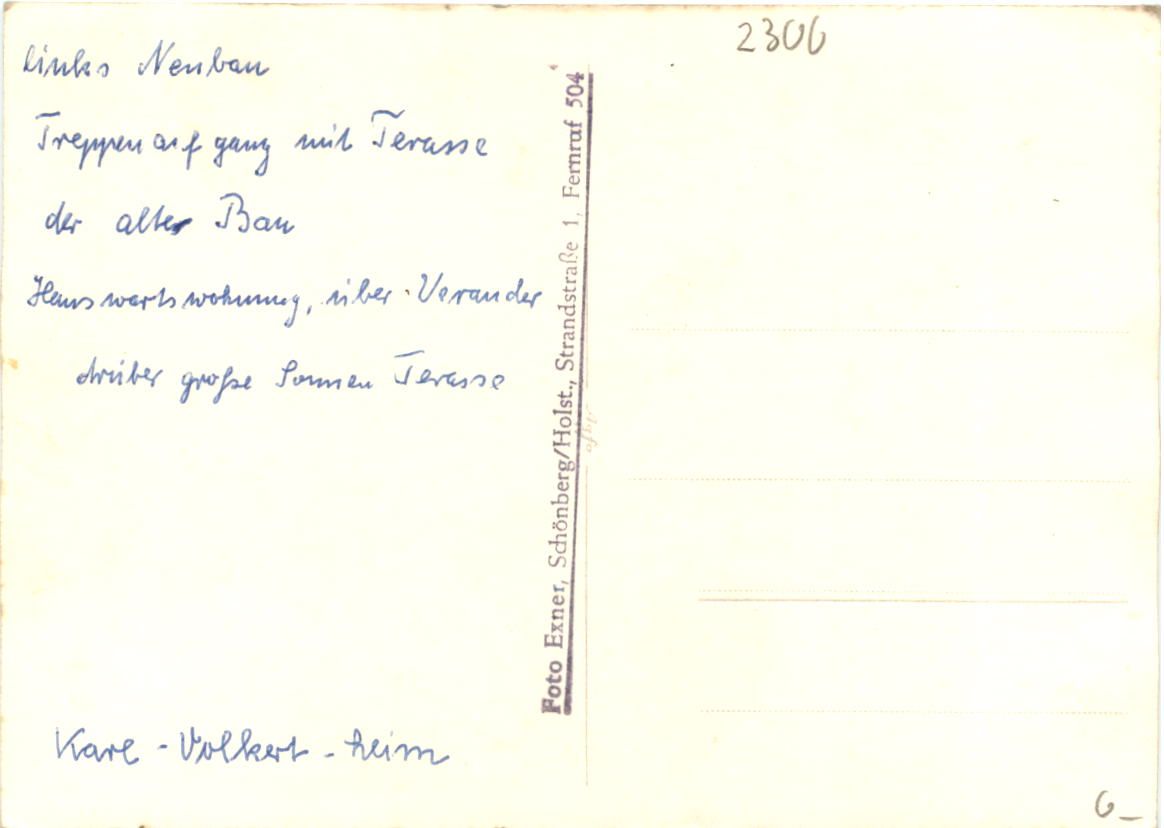 links Neubau
Treppenaufgang mit Terasse
der alte Bau
Hauswartswohnung, über Verander
drüber große Sonnen Terasse
Karl-Volkert-heim
Foto Exner, Schönberg/Holst., Strandstraße 1, Fernruf 504
2306
6_